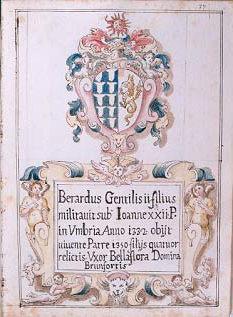 Berardus Gentilis ii filius
militauit sub Ioanne xxii P.
in Vmbria Anno 1332 obijt
uiuente Patre 1350 filijs quatuor
relictis Vxor Bellaflora Domina
Brunfortis